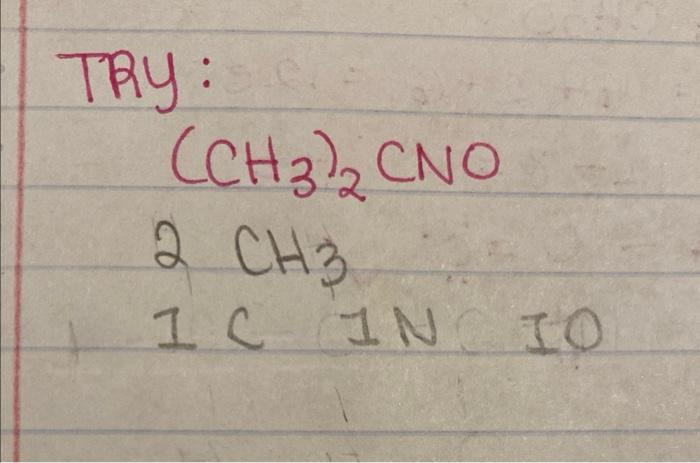 TRY:
(CH3)2 CNO
2 CH3
1 C 1 N 1 O